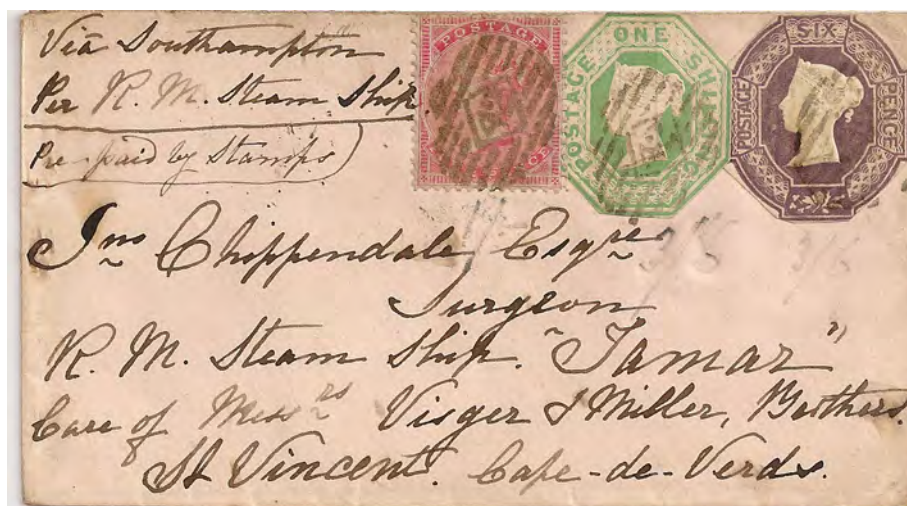 Via Southampton
Per R. M. Steam Ship.
Pre-paid by Stamps
POSTAGE
POSTAGE ONE SHILLING
POSTAGE SIX PENCE
Jno Chippendale Esqre
Surgeon
R. M. Steam Ship. "Tamar"
Care of Messrs Visger & Miller, Brothers.
St Vincent. Cape-de-Verds.